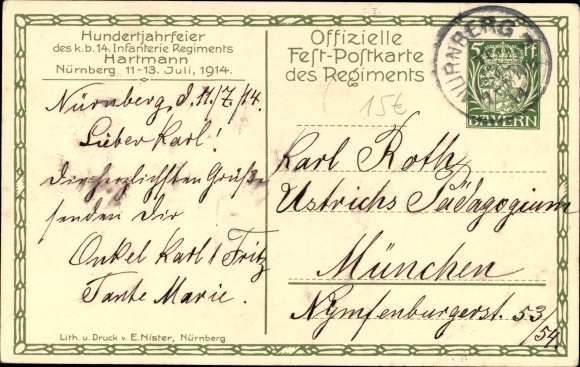 Hundertjahrfeier
des k.b. 14. Infanterie Regiments
Hartmann
Nürnberg 11-13. Juli, 1914.
Nürnberg, d. 11/7/14.
Lieber Karl!
Die herzlichsten Grüße
senden Dir
Onkel Karl, Fritz
Tante Marie.
Lith. u. Druck v. E. Nister, Nürnberg
Offizielle
Fest-Postkarte
des Regiments
15€
NÜRNBERG
5 Pf
BAYERN
Karl Roth
Ustrichs Pädagogium
München
Nymfenburgerst. 53/
54.